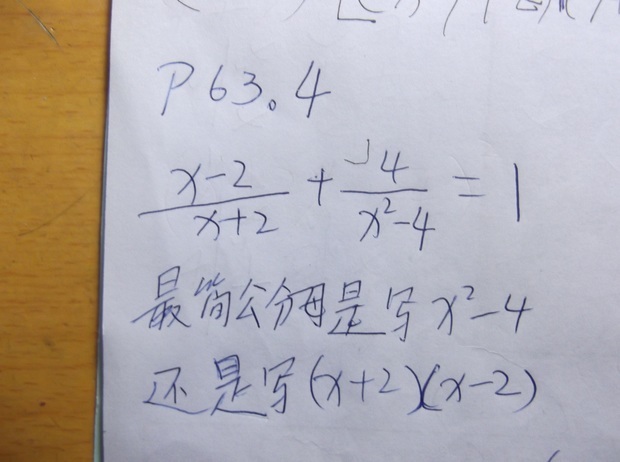 P63.4
x-2/x+2 + 4/x²-4 = 1
最简公分母是写x²-4
还是写(x+2)(x-2)